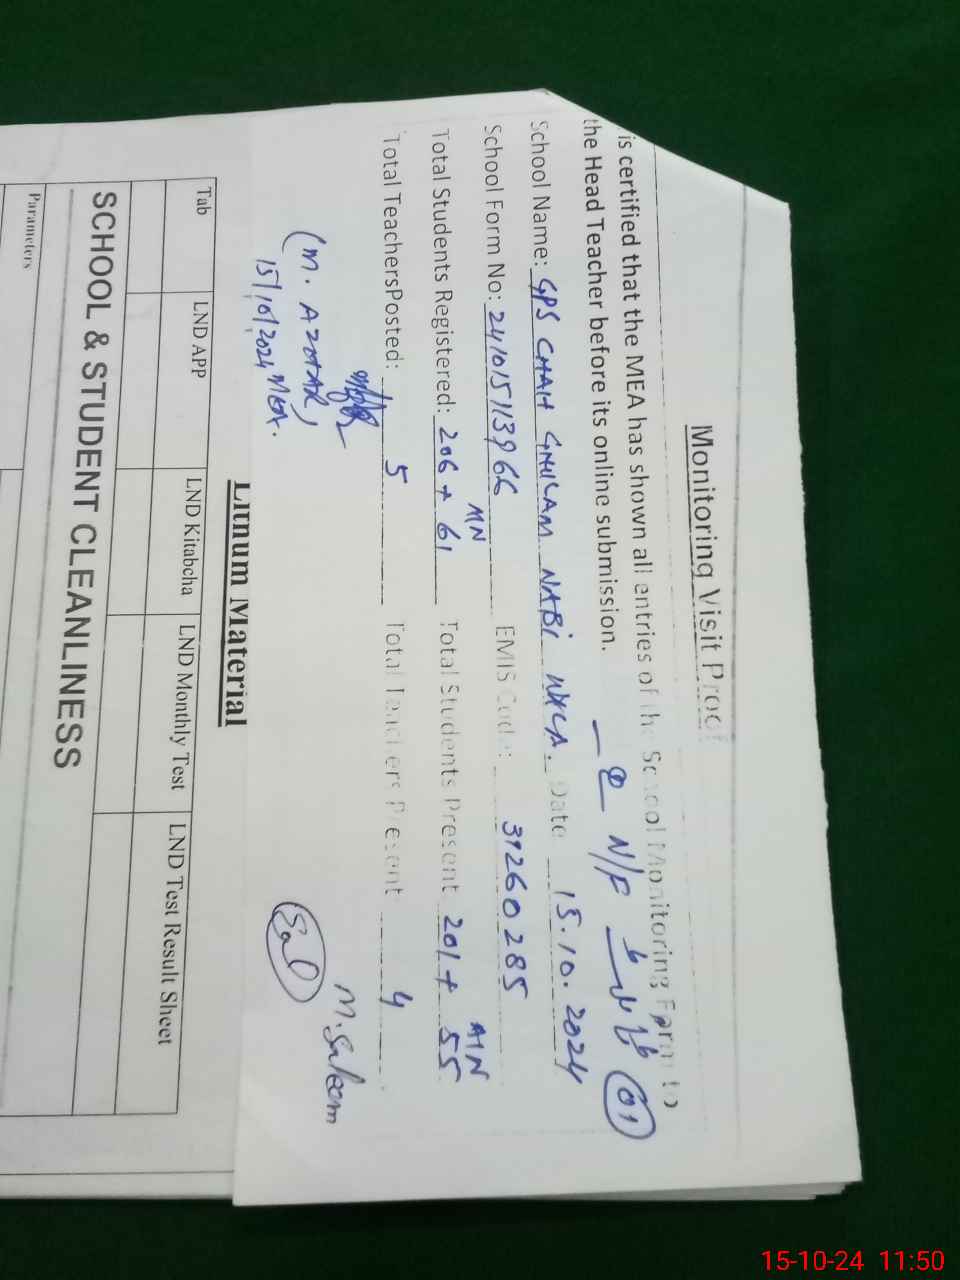 Monitoring Visit Proof
is certified that the MEA has shown all entries of the School Monitoring Form to
the Head Teacher before its online submission.
N/F 01
School Name: GPS CHAH GHULAM NABI WALA. Date 15.10.2024
School Form No: EMIS Code: 39260285
MN MN
Total Students Registered: 206 + 61 Total Students Present 201 + 55
Total TeachersPosted: 5 Total Teachers Present 4
(M. AZHAR) M. Saleem
15/10/2024 MEA.
Litnum Material
Tab LND APP LND Kitabcha LND Monthly Test LND Test Result Sheet
SCHOOL & STUDENT CLEANLINESS
Parameters
15-10-24 11:50